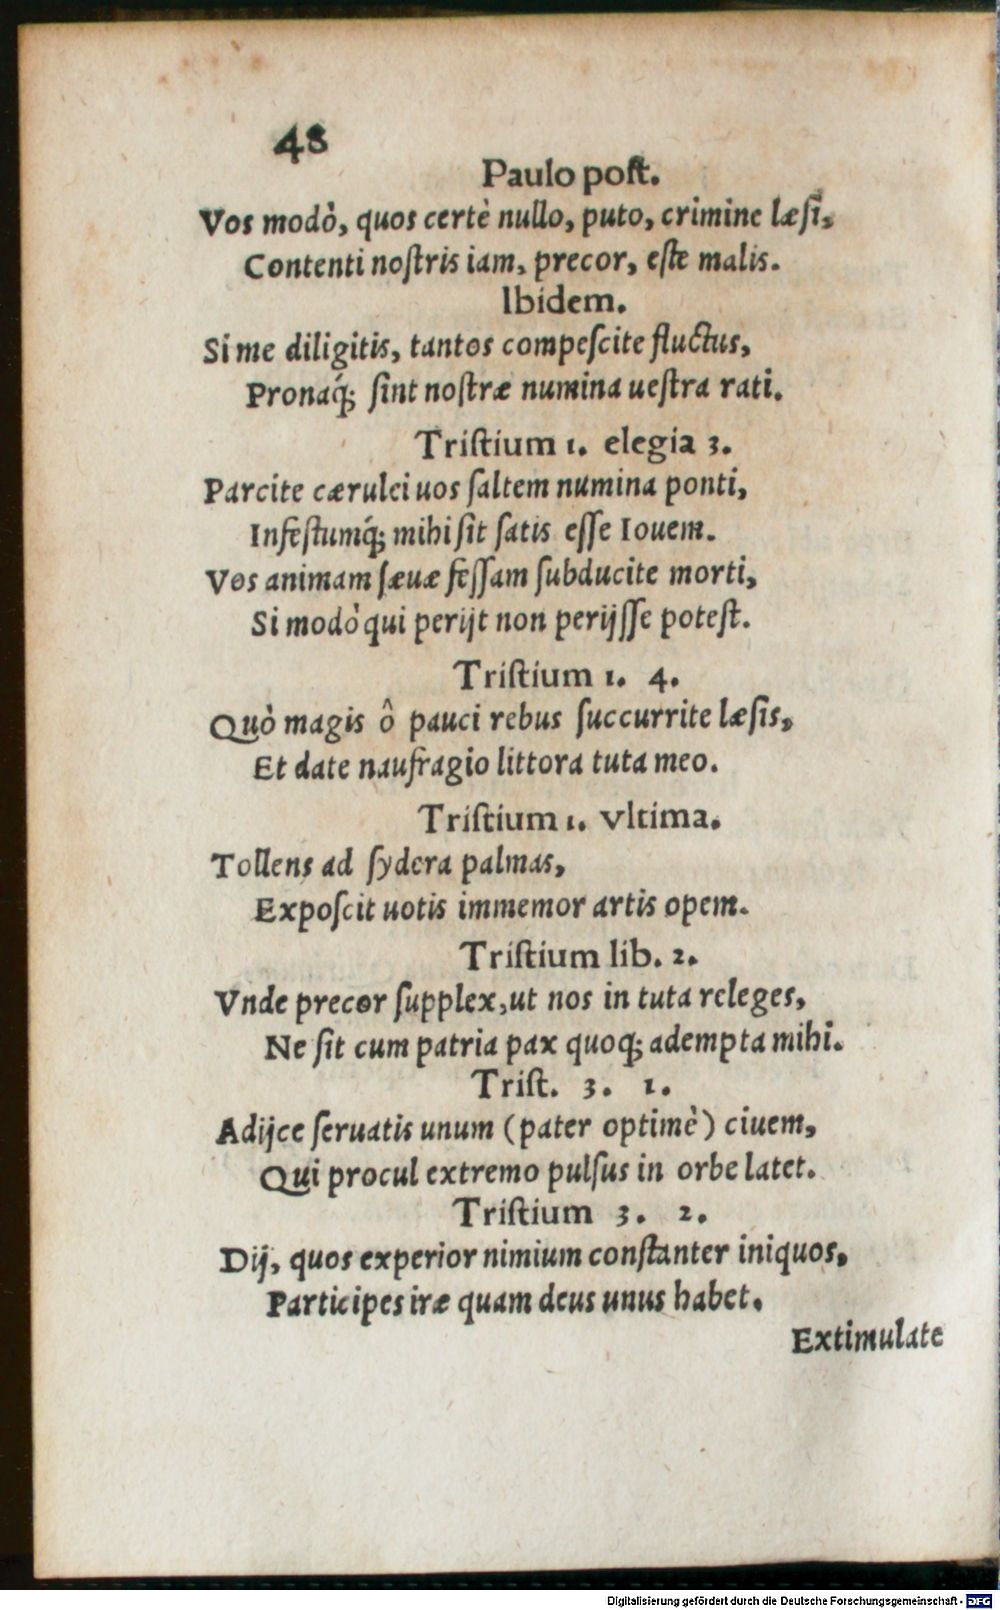 48
Paulo poſt.
Vos modò, quos certè nullo, puto, crimine læſi,
Contenti noſtris iam, precor, eſte malis.
Ibidem.
Si me diligitis, tantos compeſcite fluctus,
Pronaq́; ſint noſtræ numina ueſtra rati.
Triſtium 1. elegia 3.
Parcite cærulei uos ſaltem numina ponti,
Infeſtumq́; mihi ſit ſatis eſſe Iouem.
Vos animam ſæuæ feſſam ſubducite morti,
Si modò qui perijt non perijſſe poteſt.
Triſtium 1. 4.
Quò magis ô pauci rebus ſuccurrite læſis,
Et date naufragio littora tuta meo.
Triſtium 1. vltima.
Tollens ad ſydera palmas,
Expoſcit uotis immemor artis opem.
Triſtium lib. 2.
Vnde precor ſupplex, ut nos in tuta releges,
Ne ſit cum patria pax quoq; adempta mihi.
Triſt. 3. 1.
Adijce ſeruatis unum (pater optimè) ciuem,
Qui procul extremo pulſus in orbe latet.
Triſtium 3. 2.
Dij, quos experior nimium conſtanter iniquos,
Participes iræ quam deus unus habet.
Extimulate
Digitalisierung gefördert durch die Deutsche Forschungsgemeinschaft - DFG